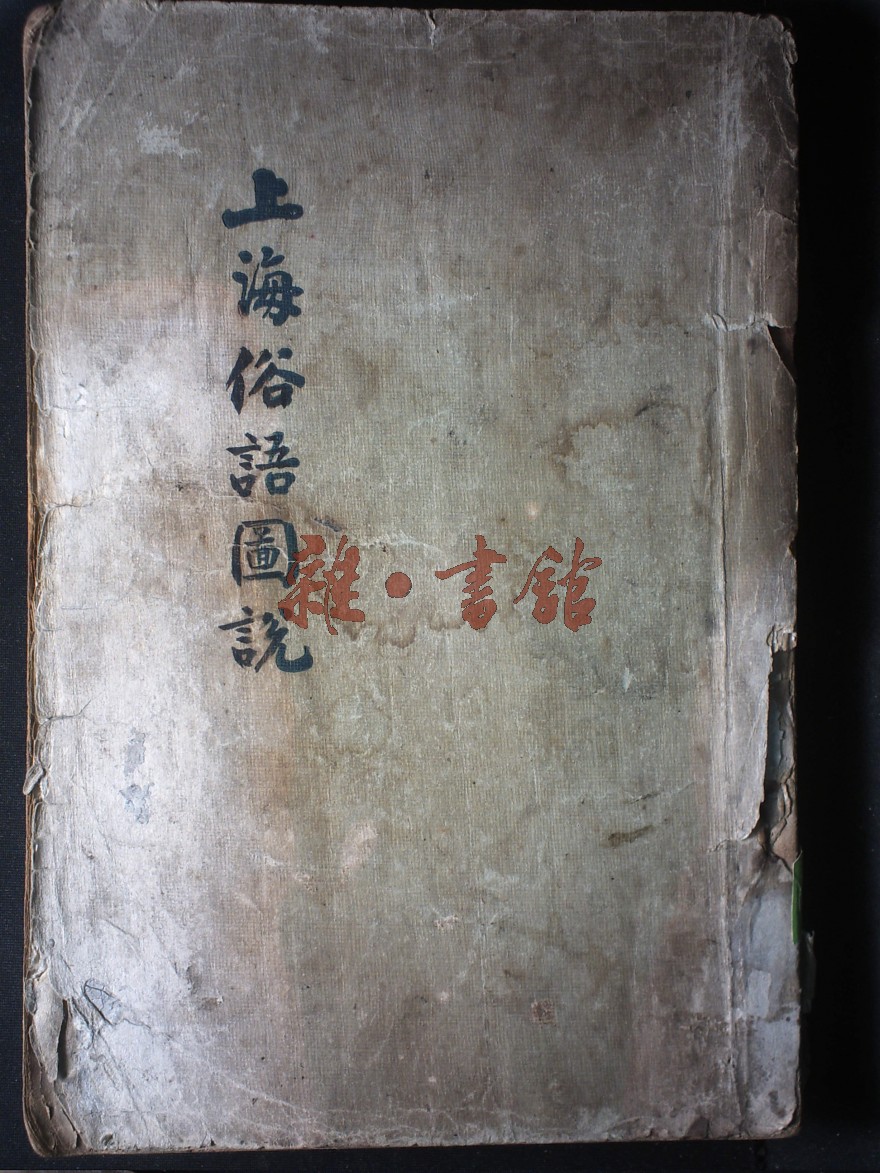 上海俗語圖說
雜·書館